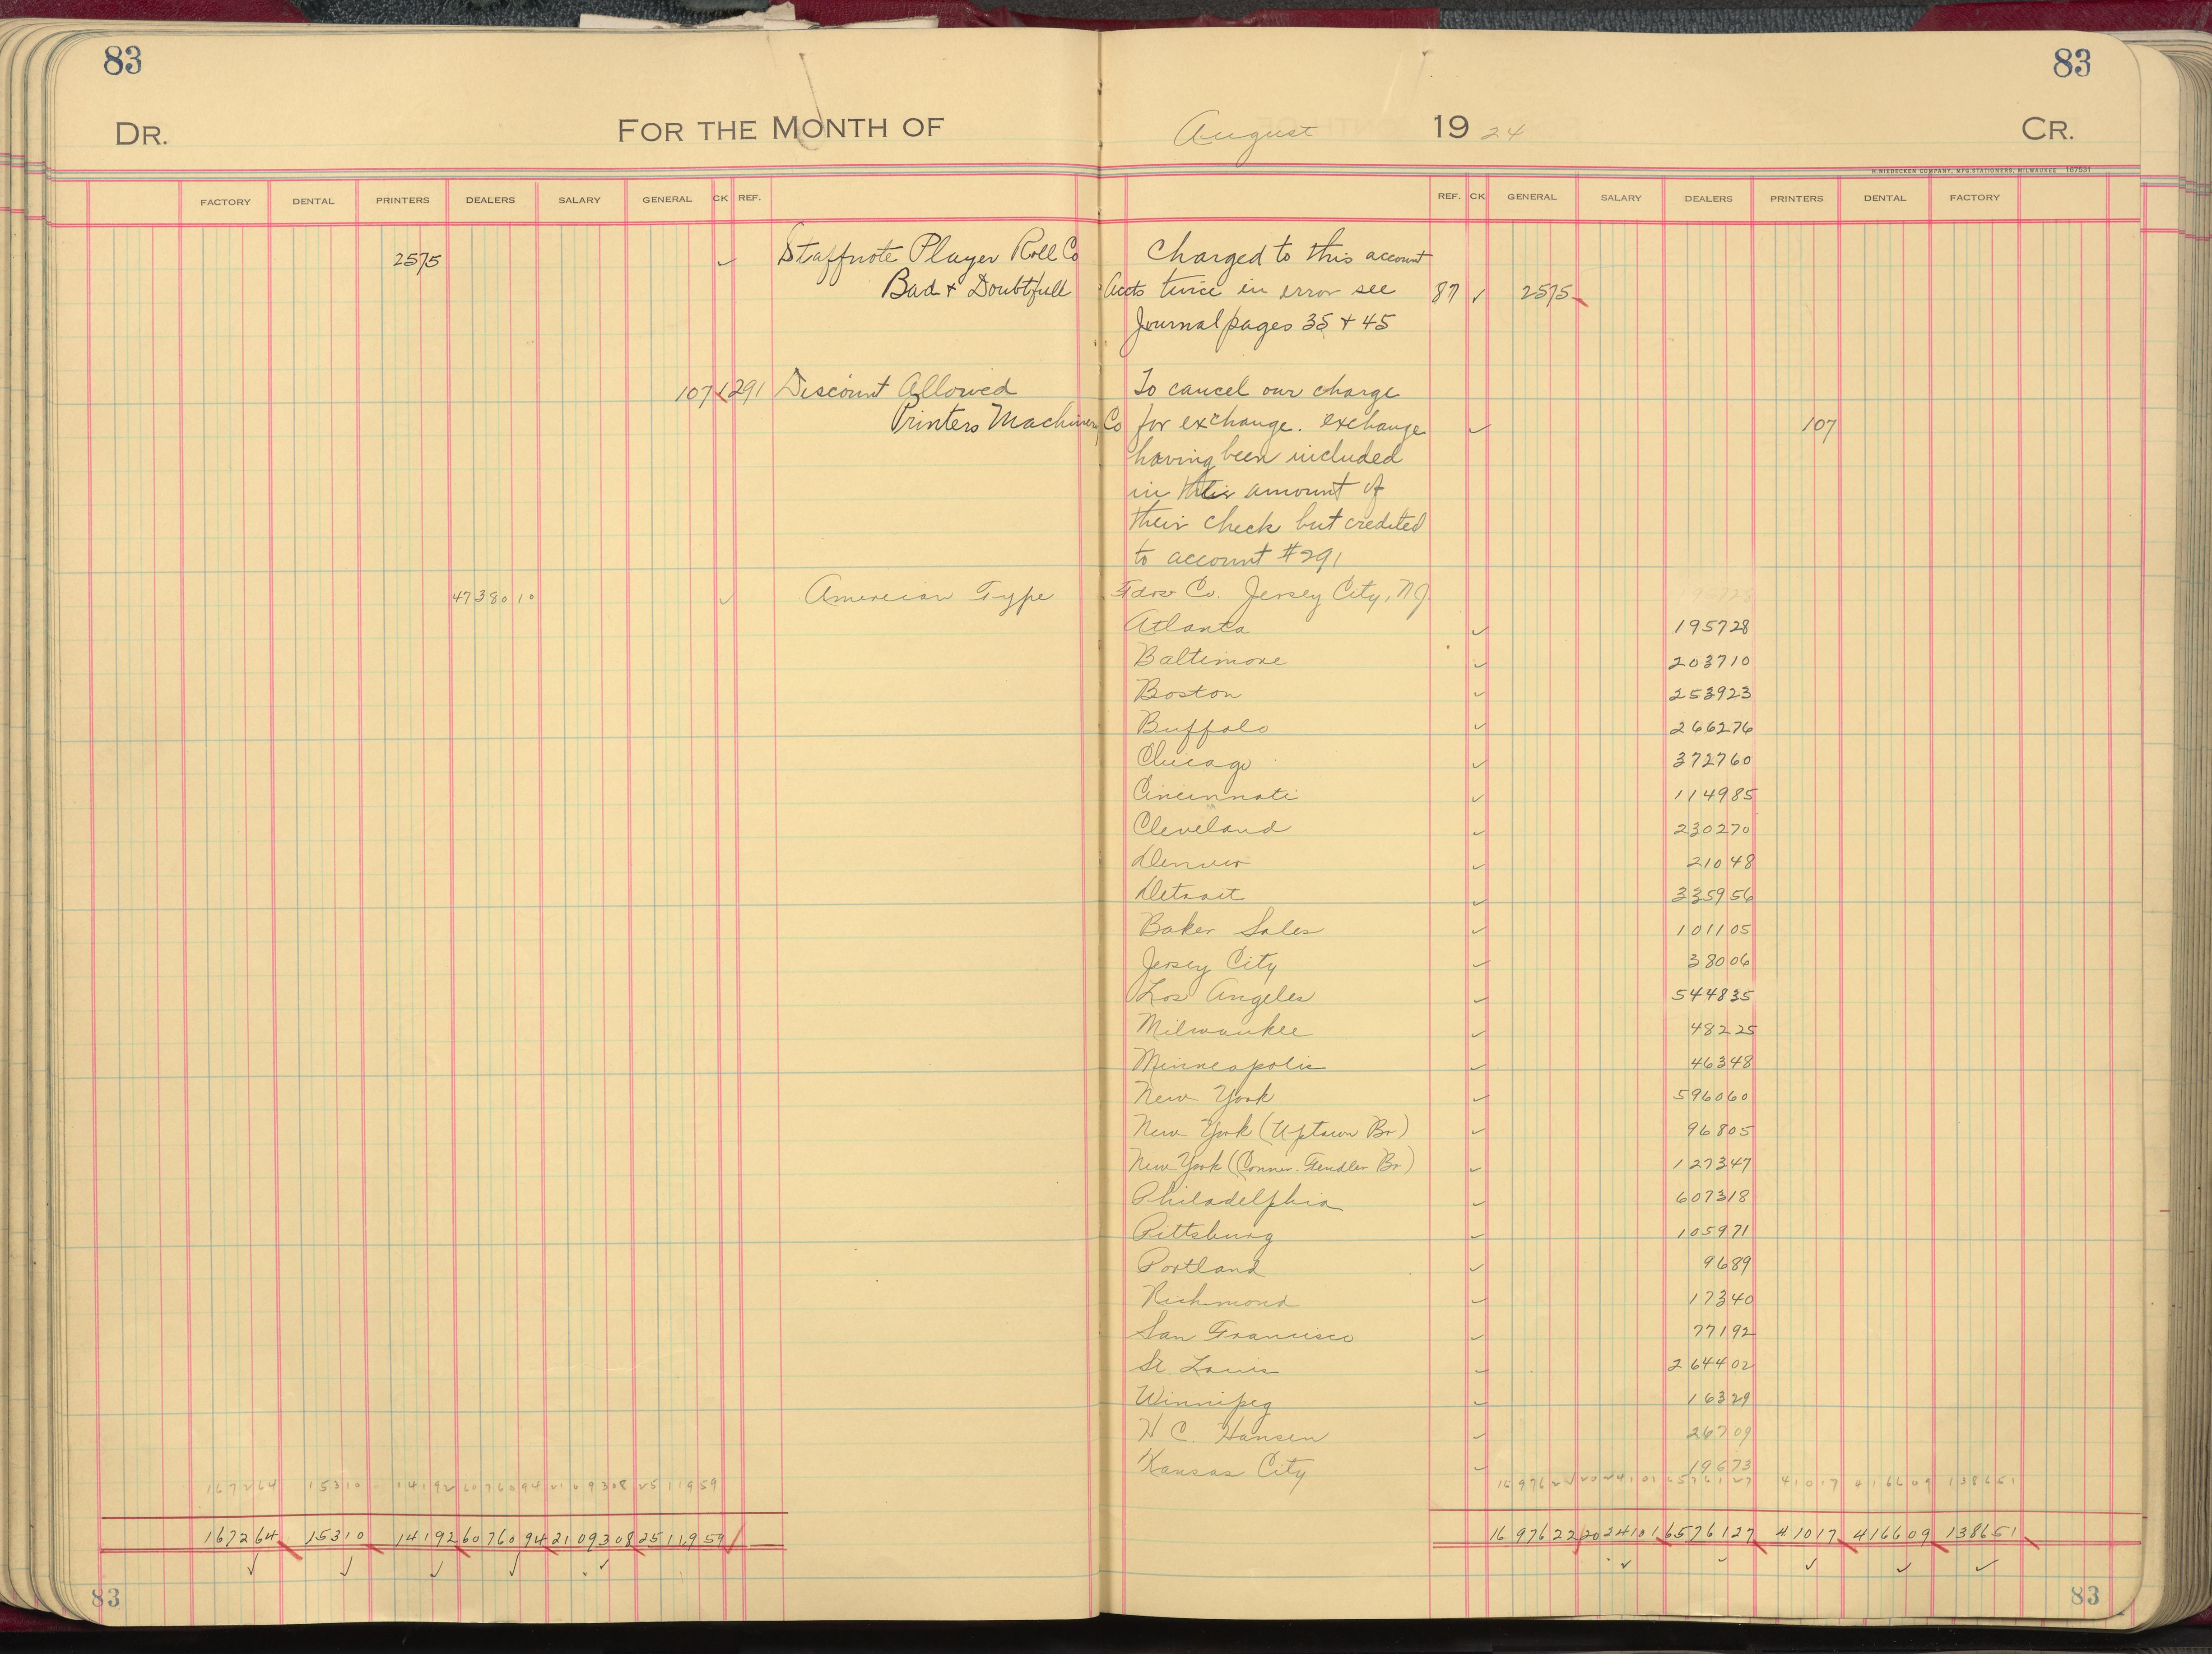 83 83
DR. FOR THE MONTH OF August 1924 CR.
H. NIEDECKEN COMPANY, MFG. STATIONERS, MILWAUKEE 107531
FACTORY DENTAL PRINTERS DEALERS SALARY GENERAL CK REF. REF. CK GENERAL SALARY DEALERS PRINTERS DENTAL FACTORY
2575 ✓ Staffnote Player Roll Co Charged to this account
Bad & Doubtfull Accts twice in error see 87 ✓ 2575
Journal pages 35 & 45
107 ✓ 291 Discount Allowed To cancel our charge
Printers Machinery Co for exchange. exchange ✓ 107
having been included
in their amount of
their check but credited
to account #291
4738010 ✓ American Type Fdrs Co. Jersey City, NJ.
Atlanta ✓ 195728
Baltimore ✓ 203710
Boston ✓ 253923
Buffalo ✓ 266276
Chicago ✓ 372760
Cincinnati ✓ 114985
Cleveland ✓ 230270
Denver ✓ 21048
Detroit ✓ 335956
Baker Sales ✓ 101105
Jersey City ✓ 38006
Los Angeles ✓ 544835
Milwaukee ✓ 48225
Minneapolis ✓ 46348
New York ✓ 596060
New York (Uptown Br) ✓ 96805
New York (Conner. Fendler Br) ✓ 127347
Philadelphia ✓ 607318
Pittsburg ✓ 105971
Portland ✓ 9689
Richmond ✓ 17340
San Francisco ✓ 77192
St. Louis ✓ 264402
Winnipeg ✓ 16329
H C. Hansen ✓ 26709
Kansas City ✓ 19673
167264 15310 14192 6076094 2109308 2511959 1697622 2024101 6576127 41017 416609 138651
167264 15310 14192 6076094 2109308 2511959 1697622 2024101 6576127 41017 416609 138651
83 83